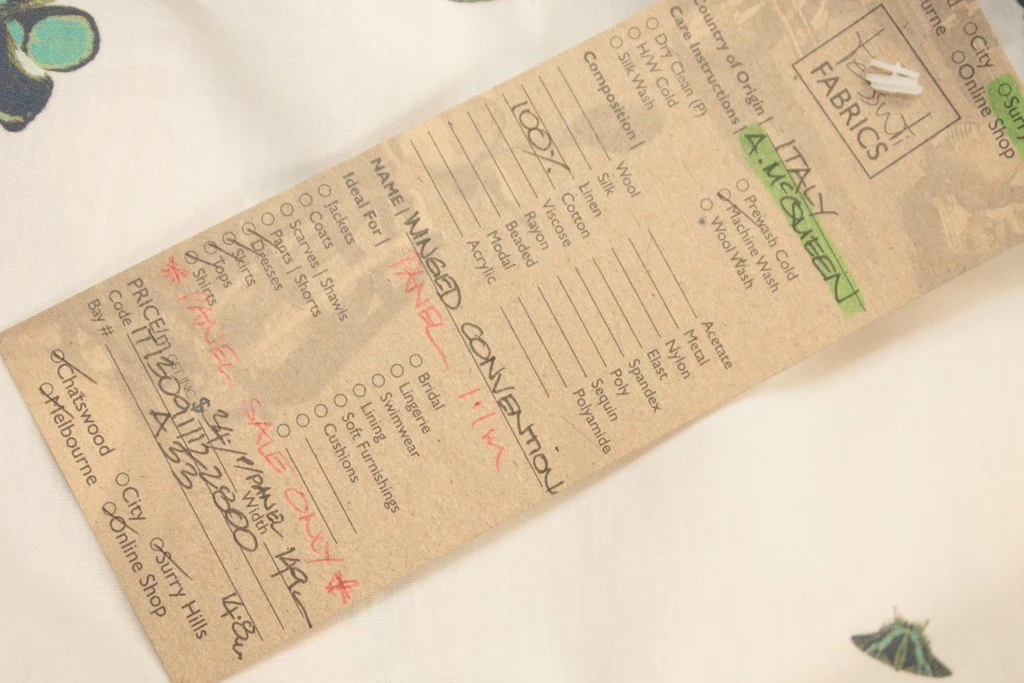 Surry
City
Online Shop
urne
Tessuti
FABRICS
Country of Origin | ITALY
Care Instructions | A. McQUEEN
Dry Clean (P)
H/W Cold
Silk Wash
Prewash Cold
Machine Wash
Wool Wash
Composition |
Wool
Silk
Linen
100% Cotton
Viscose
Rayon
Beaded
Modal
Acrylic
Acetate
Metal
Nylon
Elast
Spandex
Poly
Sequin
Polyamide
NAME | WINGED CONVENTION
PANEL 1.1m
Ideal For |
Jackets
Coats
Scarves | Shawls
Pants | Shorts
Dresses
Skirts
Tops
Shirts
Bridal
Lingerie
Swimwear
Lining
Soft Furnishings
Cushions
* PANEL SALE ONLY *
Width 149
Code
Bay # A 33
14.8m
Chatswood
Melbourne
City
Online Shop
Surry Hills